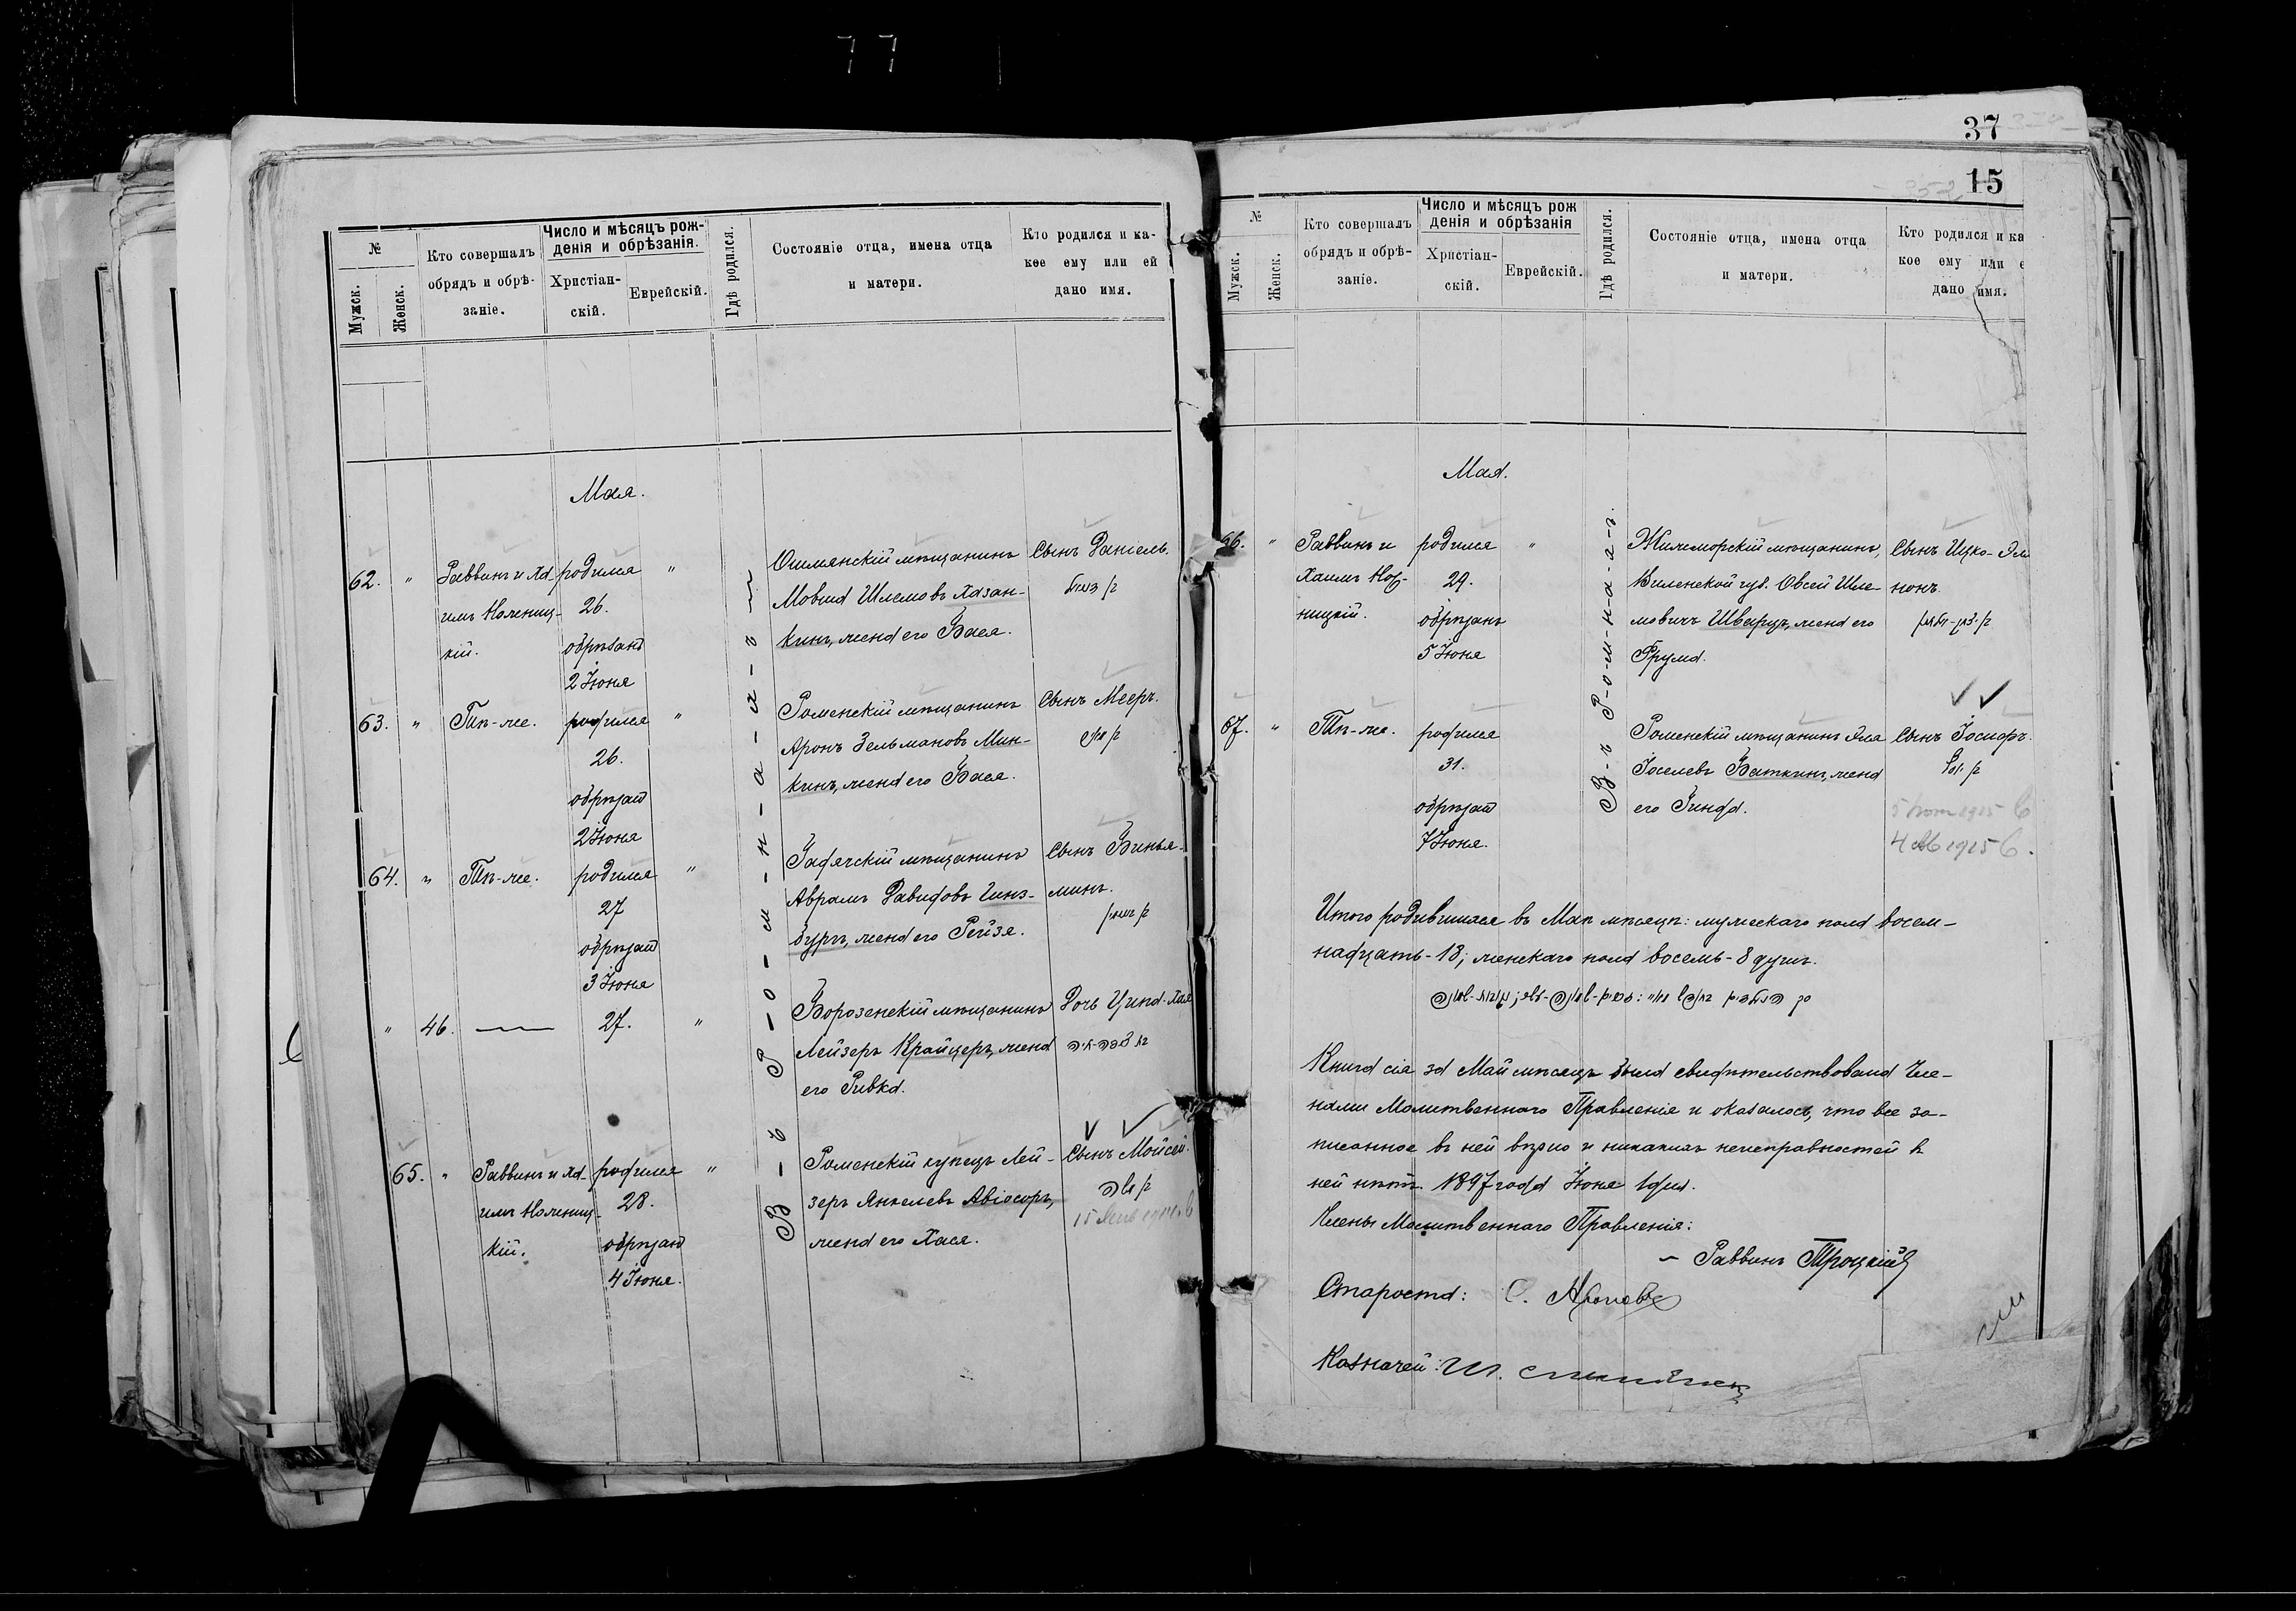 77
№
Мужск.
Женск.
Кто совершалъ
обрядъ и обрѣ-
заніе.
Число и мѣсяцъ рож-
денія и обрѣзанія.
Христіан-
скій.
Еврейскій.
Гдѣ родился.
Состояніе отца, имена отца
и матери.
Кто родился и ка-
кое ему или ей
дано имя.
Мая.
62. "
Раввинъ и Ха-
имъ
кій.
родился
26.
обрѣзанъ
2 Іюня
"
В-ъ Р-о-м-н-а-х-ъ
Ошмянскій мѣщанинъ
Мовша Шлемовъ Хазан-
кинъ, жена его Бася.
Сынъ Даніель.
63. "
Тѣ-же.
родился
26.
обрѣзанъ
2 Іюня
"
Роменскій мѣщанинъ
Аронъ Зельмановъ Мин-
кинъ, жена его Бася.
Сынъ Мееръ.
64. "
Тѣ-же.
родился
27
обрѣзанъ
3 Іюня
"
Гадячскій мѣщанинъ
Аврамъ Давидовъ Гинз-
бургъ, жена его Рейзя.
Сынъ Бинья-
минъ.
בן בנימין
" 46.
27.
"
Борозенскій мѣщанинъ
Лейзеръ Крайцеръ, жена
его Ривка.
Дочь Ципа-Хая
65. "
Раввинъ и Ха-
имъ
кій.
родился
28.
обрѣзанъ
4 Іюня.
"
Роменскій купецъ Лей-
зеръ Янкелевъ Авіосоръ,
жена его Хася.
Сынъ Мойсей.
בן משה
37
15
№
Мужск.
Женск.
Кто совершалъ
обрядъ и обрѣ-
заніе.
Число и мѣсяцъ рож
денія и обрѣзанія
Христіан-
скій.
Еврейскій.
Гдѣ родился.
Состояніе отца, имена отца
и матери.
Кто родился и ка
кое ему или е
дано имя.
Мая.
66. "
Раввинъ и
Хаимъ
ницкій.
родился
29.
обрѣзанъ
5 Іюня
"
В-ъ Р-о-м-н-а-х-ъ.
Жижморскій мѣщанинъ,
Виленской губ. Овсей Шле-
мовичъ Шварцъ, жена его
Фрума.
Сынъ Ицко-Эль
нонъ.
67. "
Тѣ-же.
родился
31.
обрѣзанъ
7 Іюня.
Роменскій мѣщанинъ Эля
Іоселевъ Баткинъ, жена
его Гинда.
Сынъ Іосифъ.
בן יוסף
1915
1915
Итого родившихся въ Маѣ мѣсяцѣ: мужескаго пола восем-
надцать-18; женскаго пола восемь-8 душъ.
Книга сія за Май мѣсяцъ была свидѣтельствована Чле-
нами Молитвеннаго Правленія и оказалось, что все за-
писанное въ ней вѣрно и никакихъ неисправностей въ
ней нѣтъ. 1897 года Іюня 1 дня.
Члены Молитвеннаго Правленія:
Раввинъ Троцкій
Староста:
Казначей: